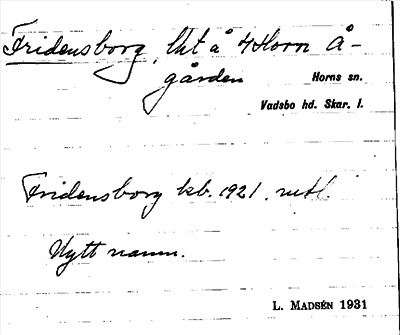 Fridensborg, lht å 4 Horn Å-
gården
Horns sn.
Vadsbo hd. Skar. l.
Fridensborg kb. 1921.
Nytt namn.
L. MADSÉN 1931